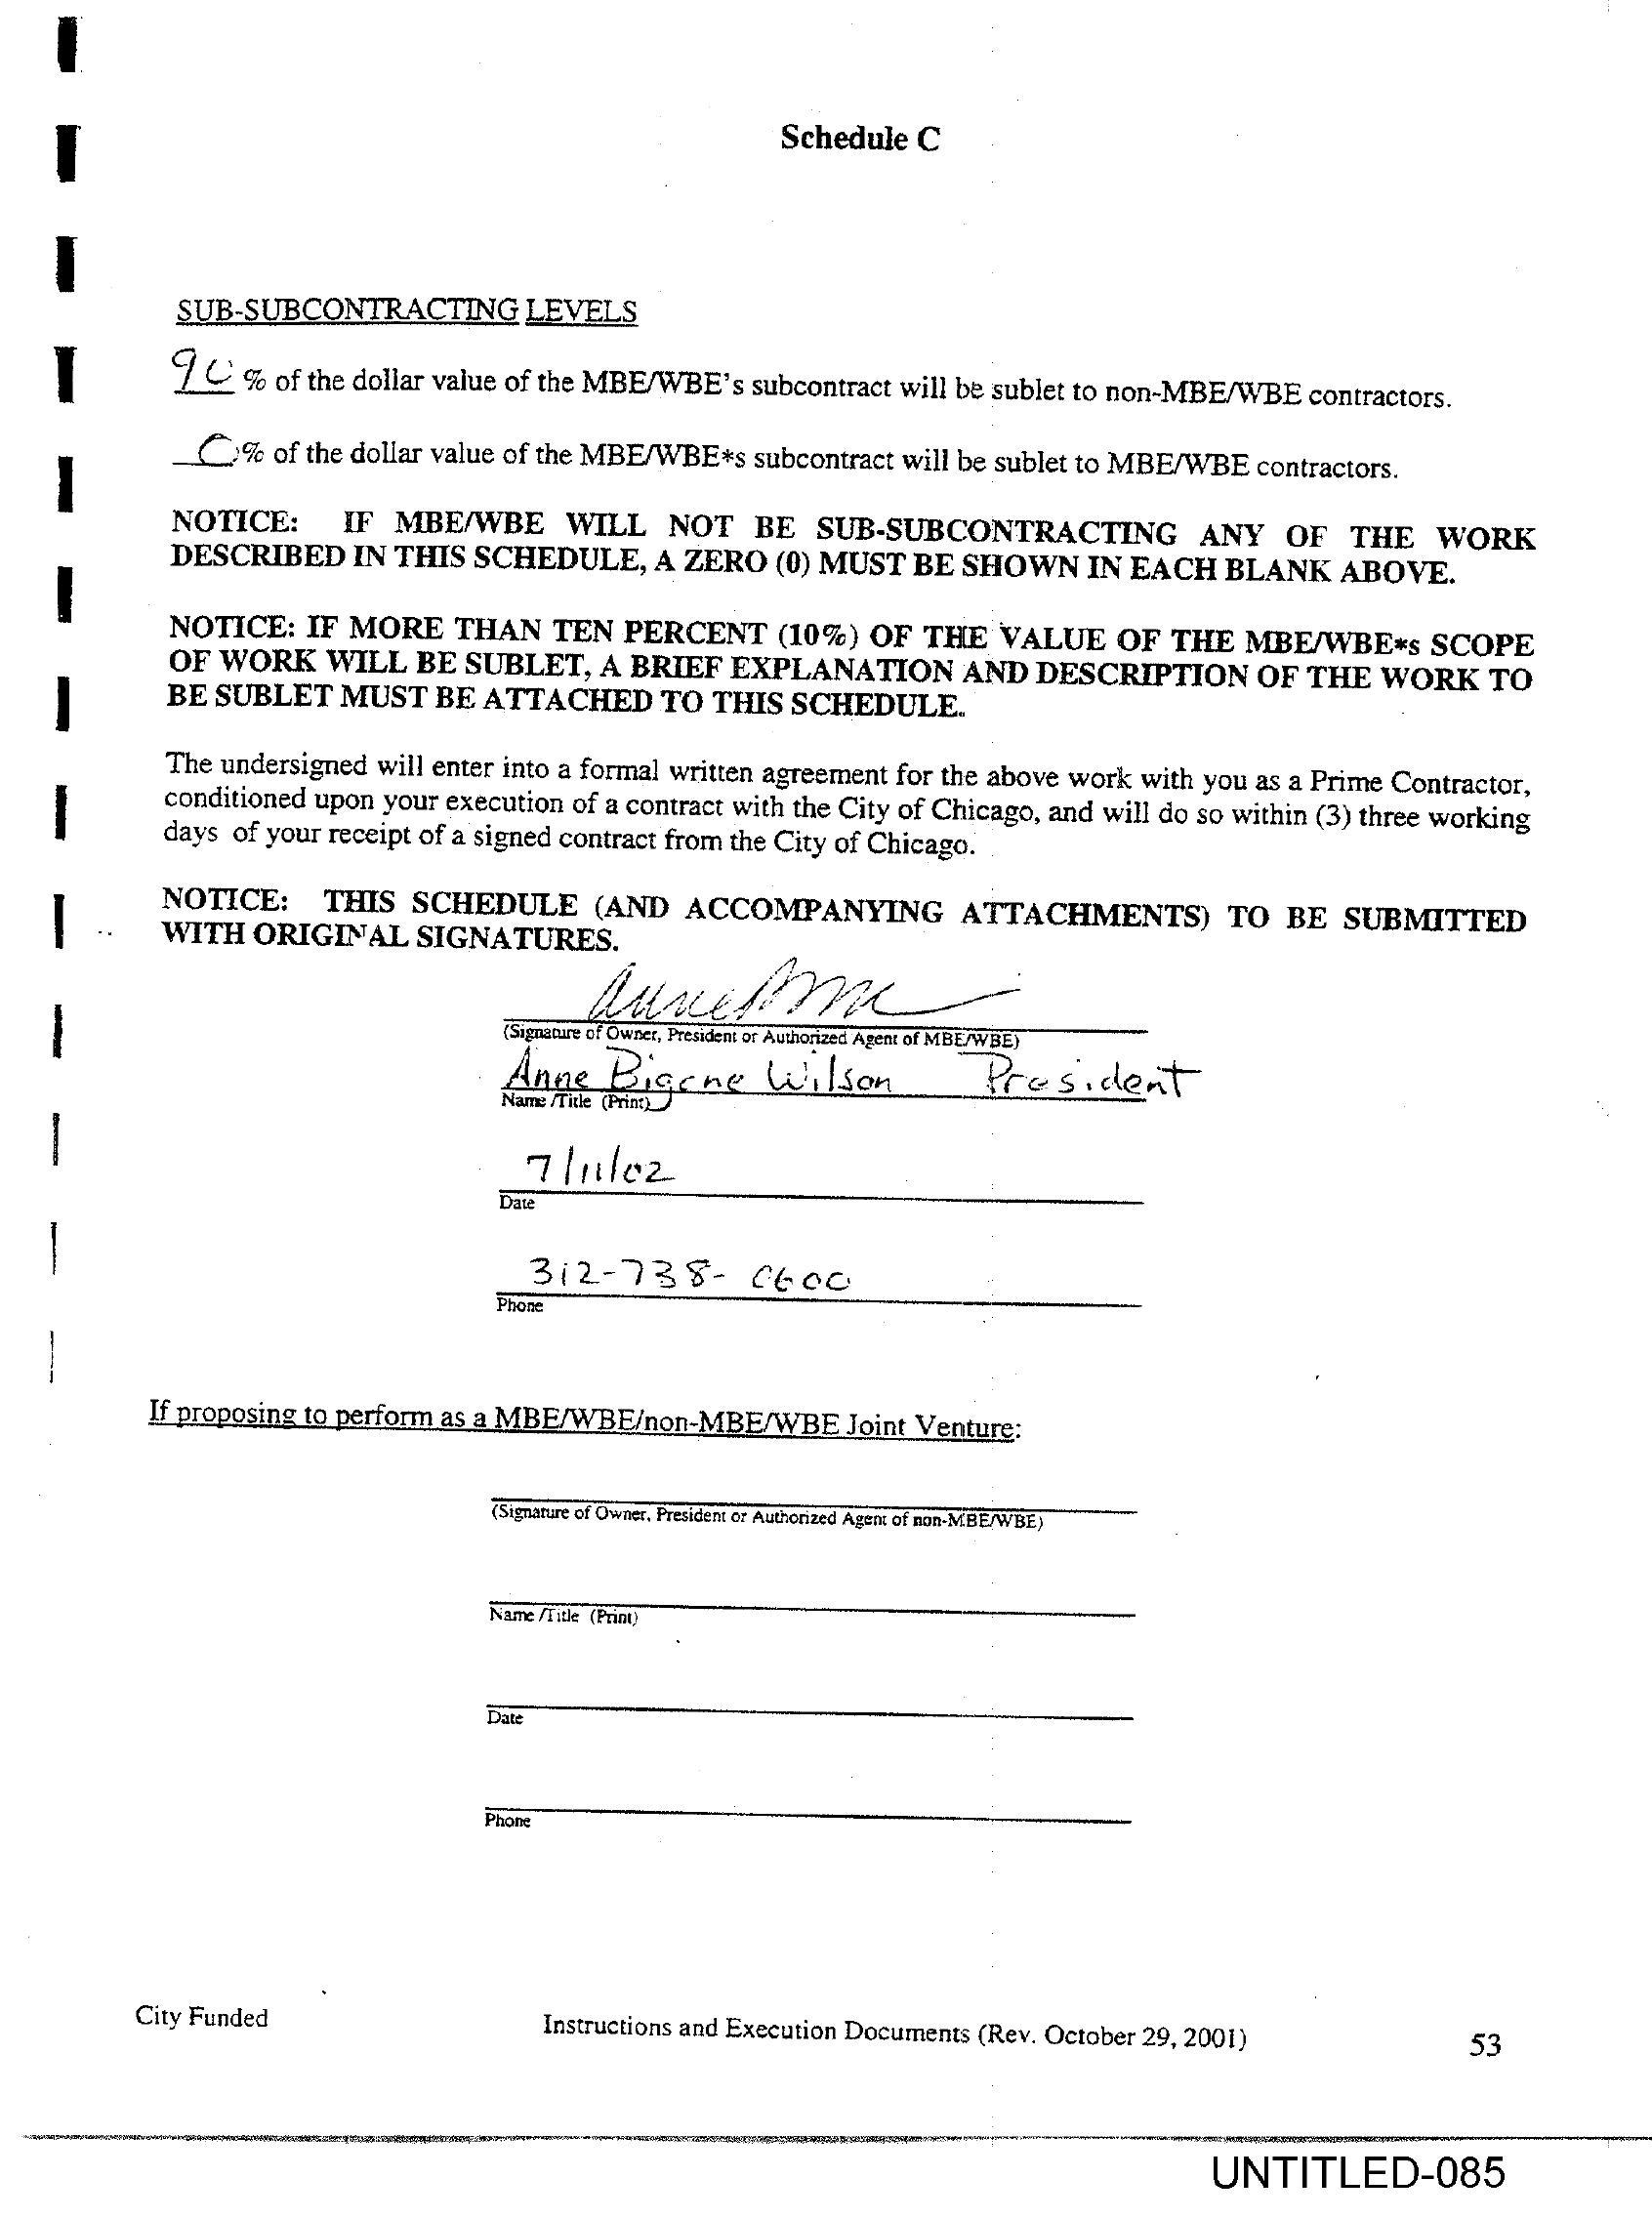 Schedule C
SUB-SUBCONTRACTING LEVELS
90 % of the dollar value of the MBE/WBE's subcontract will be sublet to non-MBE/WBE contractors.
0 % of the dollar value of the MBE/WBE*s subcontract will be sublet to MBE/WBE contractors.
NOTICE: IF MBE/WBE WILL NOT BE SUB-SUBCONTRACTING ANY OF THE WORK
DESCRIBED IN THIS SCHEDULE, A ZERO (0) MUST BE SHOWN IN EACH BLANK ABOVE.
NOTICE: IF MORE THAN TEN PERCENT (10%) OF THE VALUE OF THE MBE/WBE*s SCOPE
OF WORK WILL BE SUBLET, A BRIEF EXPLANATION AND DESCRIPTION OF THE WORK TO
BE SUBLET MUST BE ATTACHED TO THIS SCHEDULE.
The undersigned will enter into a formal written agreement for the above work with you as a Prime Contractor,
conditioned upon your execution of a contract with the City of Chicago, and will do so within (3) three working
days of your receipt of a signed contract from the City of Chicago.
NOTICE: THIS SCHEDULE (AND ACCOMPANYING ATTACHMENTS) TO BE SUBMITTED
WITH ORIGINAL SIGNATURES.
(Signature of Owner, President or Authorized Agent of MBE/WBE)
Anne Bigane Wilson President
Name /Title (Print)
7/11/02
Date
312-738-0600
Phone
If proposing to perform as a MBE/WBE/non-MBE/WBE Joint Venture:
(Signature of Owner, President or Authorized Agent of non-MBE/WBE)
Name /Title (Print)
Date
Phone
City Funded
Instructions and Execution Documents (Rev. October 29, 2001)
53
UNTITLED-085